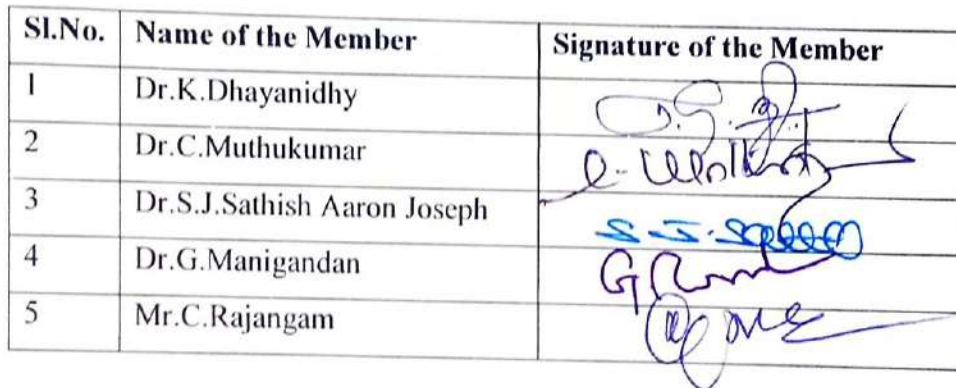 Sl.No. Name of the Member Signature of the Member
1 Dr.K.Dhayanidhy
2 Dr.C.Muthukumar
3 Dr.S.J.Sathish Aaron Joseph
4 Dr.G.Manigandan
5 Mr.C.Rajangam